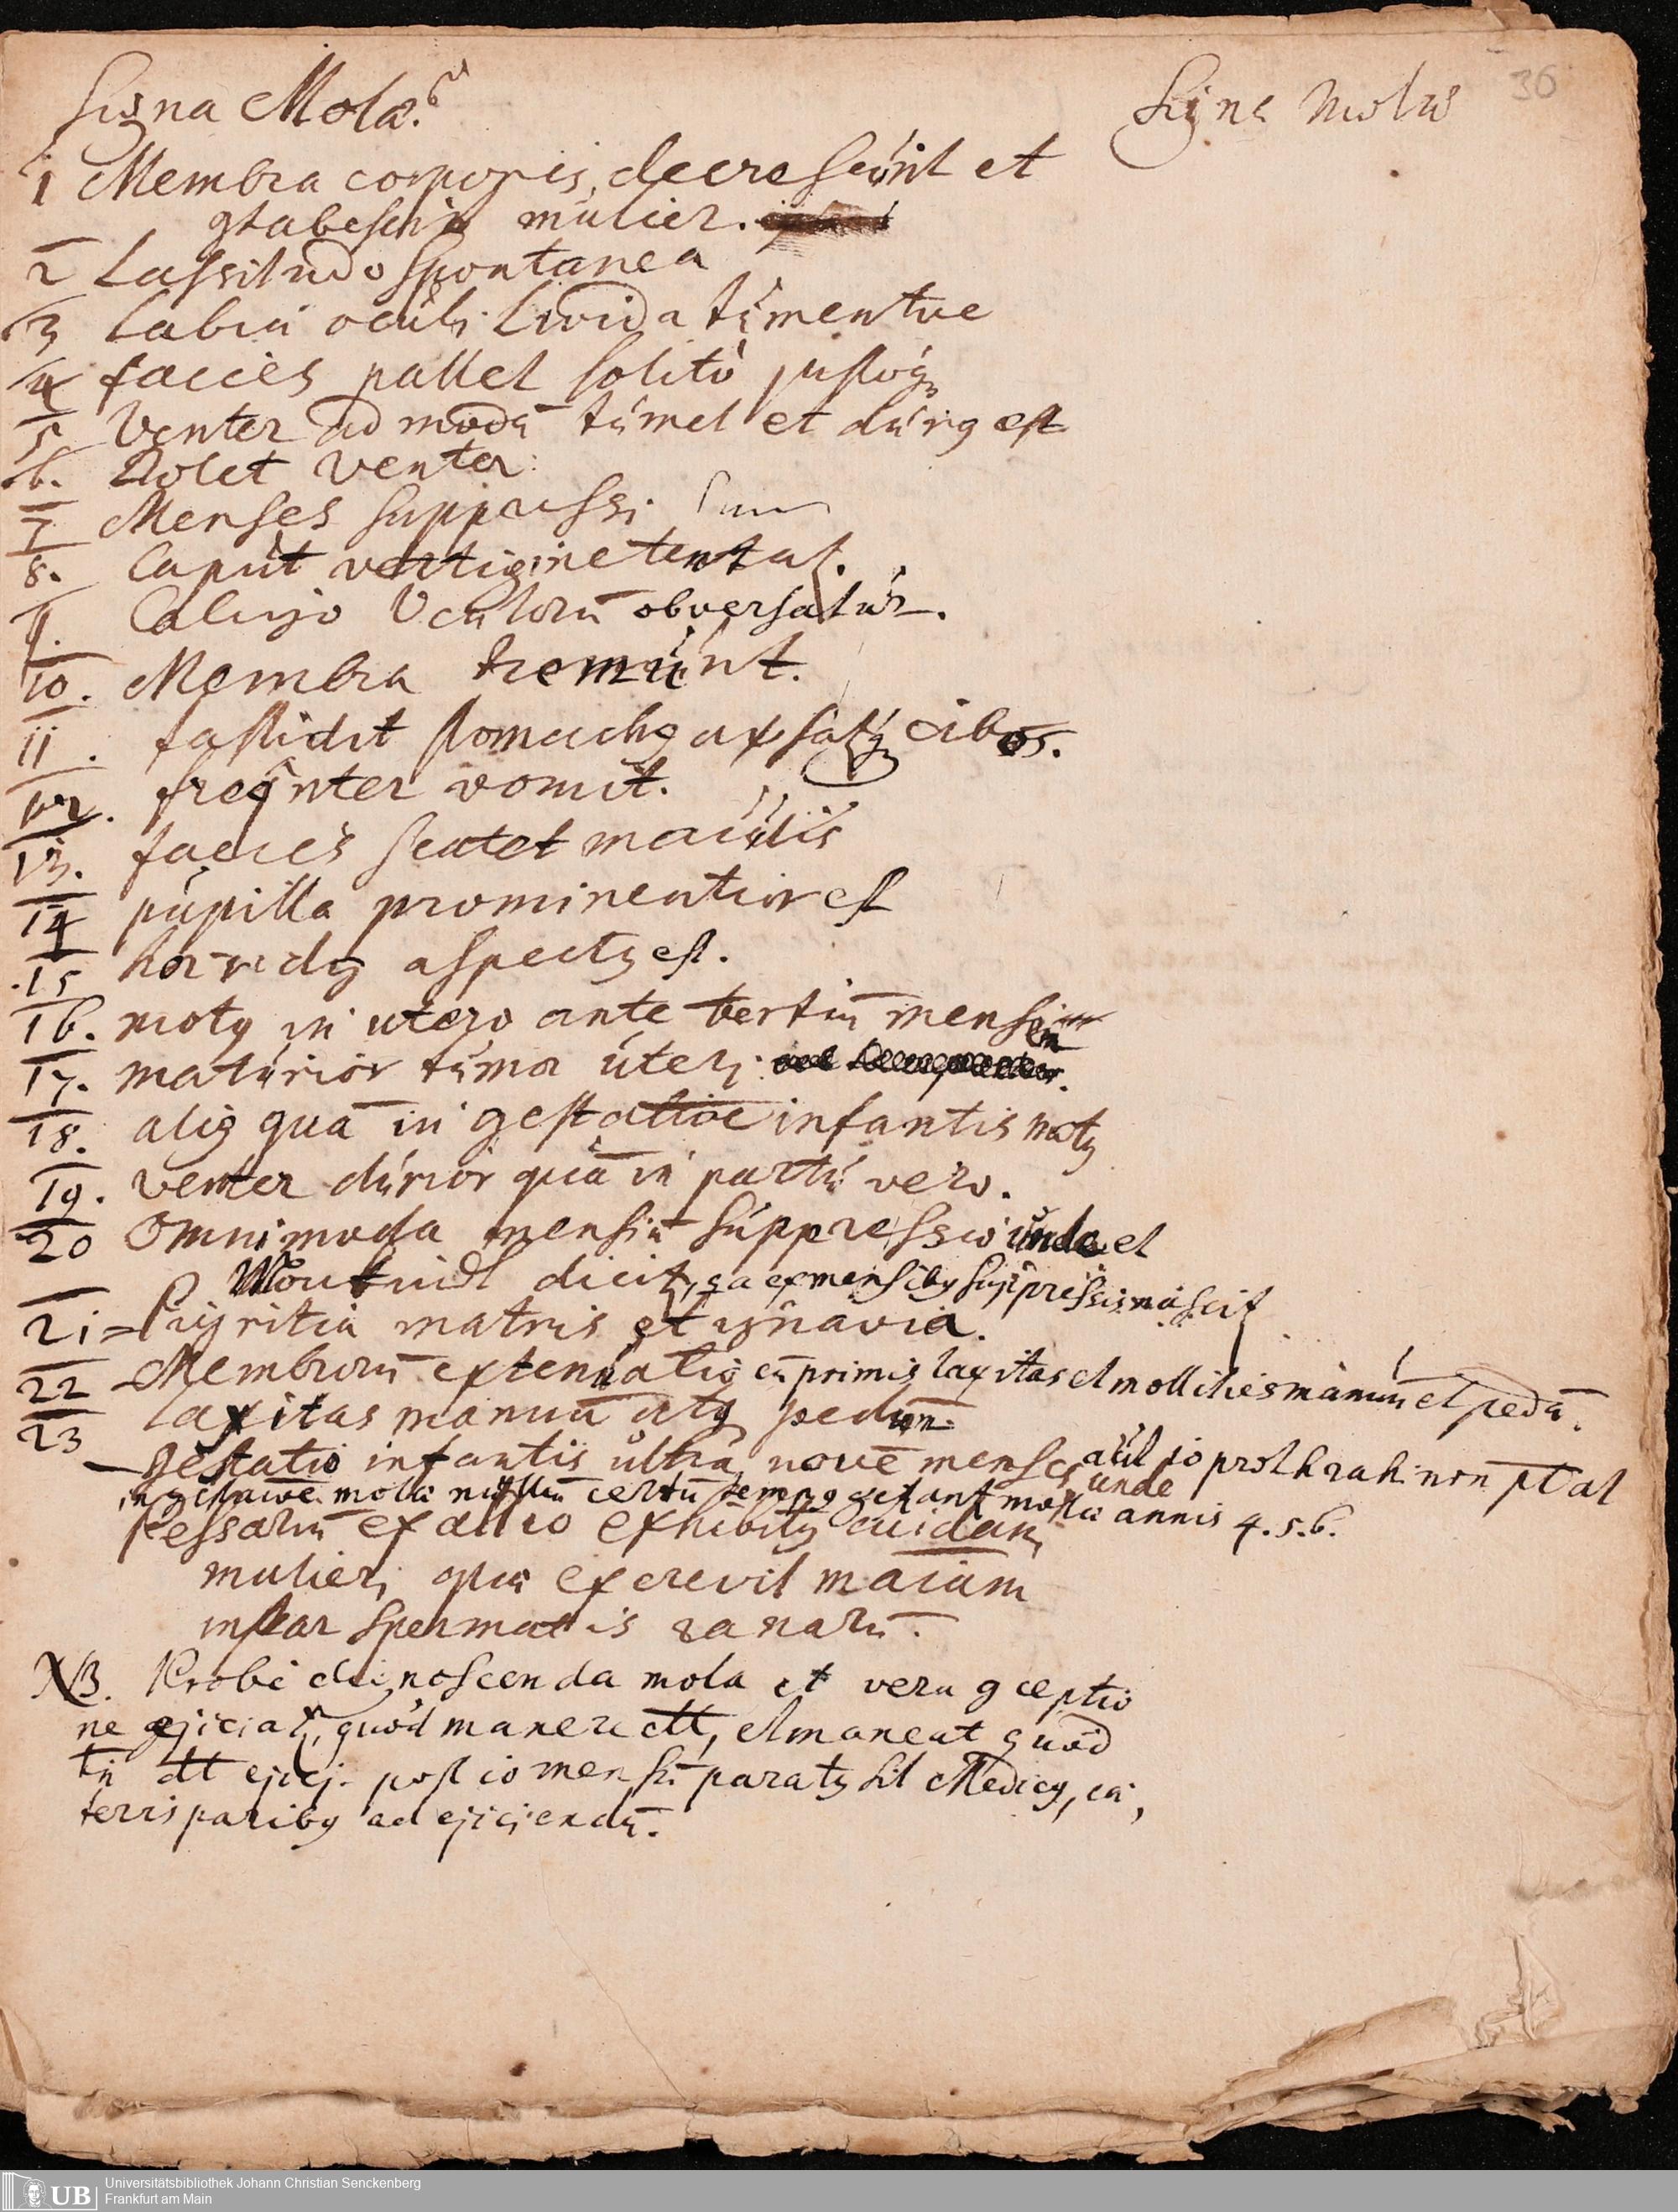 Signa Molæ.
Signa Molæ
36
1 Membra corporis decrescunt et
9tabescit mulier.
2 Lassitudo spontanea
3 Labia oculi livida tumentve
4 facies pallet solito justoq3
5 Venter ad modū tumet et durq est
6. Dolet venter.
7 Menses suppressi sunt
8. Caput vertigine tentat.
9. Caligo Oculorū obversatur.
10. Membra tremunt.
11. fastidit stomachq cibos.
12. freqnter vomit.
13. facies scatet maculis
14 pupilla prominentior est
15 horridq aspectq est.
16. motq in utero ante tertiū mensem
17. maturior tumor uteri
18. aliq quā in gestatiōe infantis motq
19. venter durior quā in partu vero.
20 Omnimoda mensiū suppressio unde et
Monkindl dicit, qa ex mensibq suppressis nascit
21 Pigritia matris et ignavia.
22 Membrorū extenuatio cū primis laxitas et mollities manuū et pedū.
23 laxitas manuū atq3 pedum
gestatio infantis ultra novē menses aut 10 protrahi non pt at
in gestatiōe mola nullū certū tempq gestant mola annis 4. 5. 6. unde
Pessariū ex exhibitq cuidam
mulieri quæ excrevit
instar spermatis ranarū.
NB. Probe dignoscenda mola et vera 9ceptio
ne ejiciat, quod manere dt, et maneat quod
tn dt ejici. post 10 mensiū paratq sit Medicq, cæ,
teris paribq ad ejiciendū.
UB Universitätsbibliothek Johann Christian Senckenberg
Frankfurt am Main